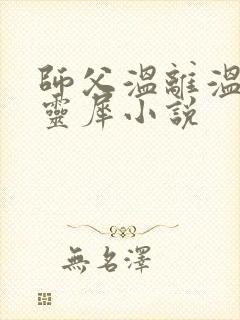 師父溫離溫
靈犀小説
無名澤